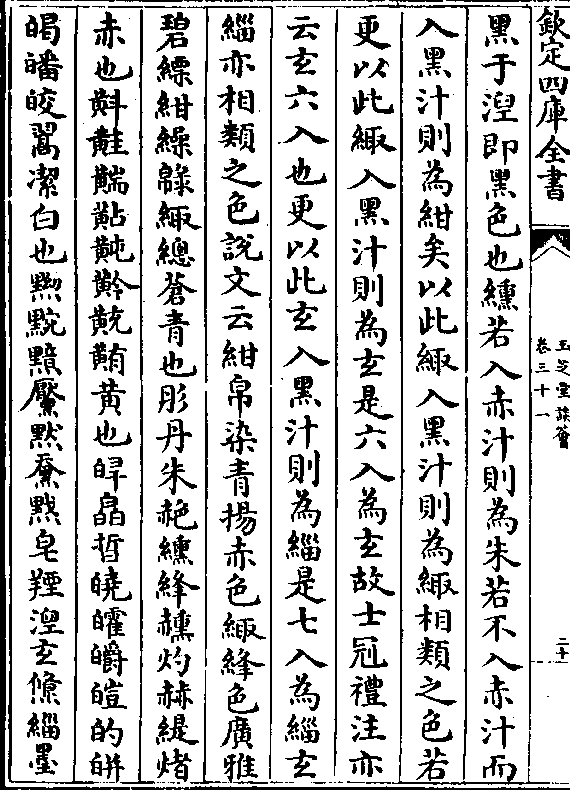 欽定四庫全書
玉芝堂談薈
卷三十一
二十
黑于涅即黑色也纁若入赤汁則為朱若不入赤汁而
入黑汁則為紺矣以此緅入黑汁則為緅相類之色若
更以此緅入黑汁則為玄是六入為玄故士冠禮注亦
云玄六入也更以此玄入黑汁則為緇是七入為緇玄
緇亦相類之色說文云紺帛染青揚赤色緅絳色廣雅
碧縹紺繰綟緅總蒼青也彤丹朱赩纁絳𧹞灼赫緹赭
赤也黊黇黅黈黃也皡皛晳皢皬皭皚的皏
皓皤皎翯潔白也黦黗黯黶默黧黓皂羥涅玄緇墨